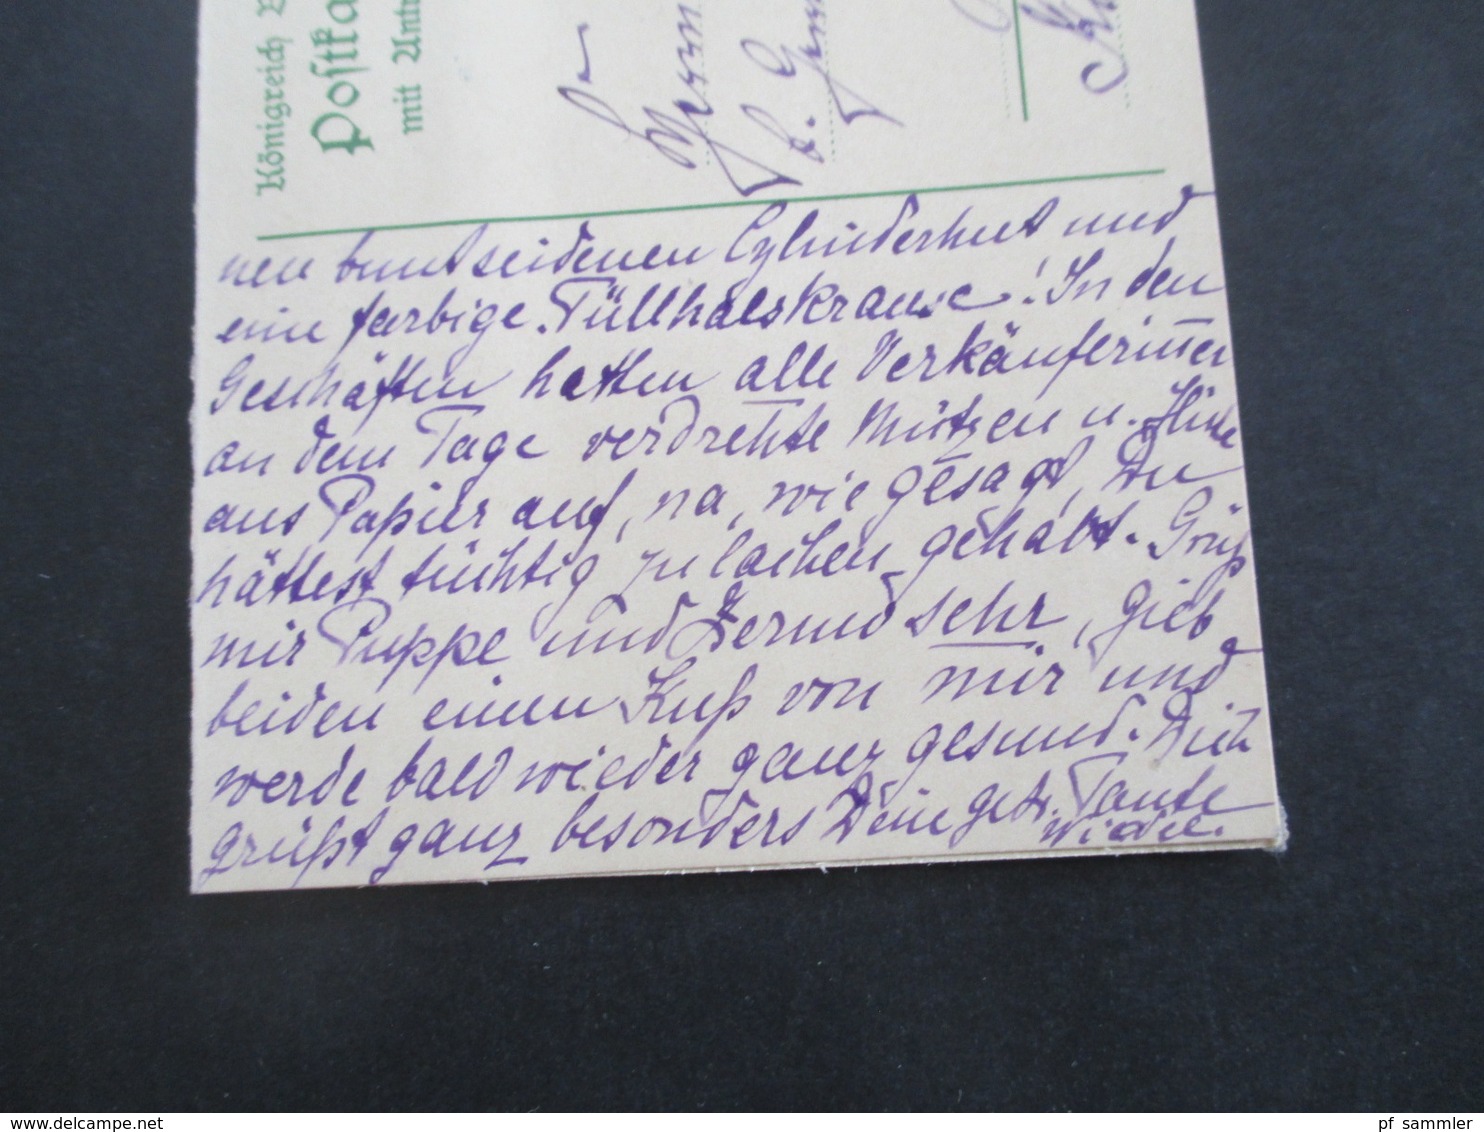 Königreich B
Postka
mit Antw
nen buntseidenen Cylinderhut und
eine farbige Tüllhalskrause! In den
Geschäften hatten alle Verkäuferinnen
an dem Tage verdrehte Mützen u. Hüte
aus Papier auf, na, wie gesagt, Du
hättest tüchtig zu lachen gehabt. Grüß
mir Puppe und sehr, gieb
beiden einen Kuß von mir und
werde bald wieder ganz gesund. Dich
grüßt ganz besonders Deine getr. Tante
pf sammler
www.delcampe.net